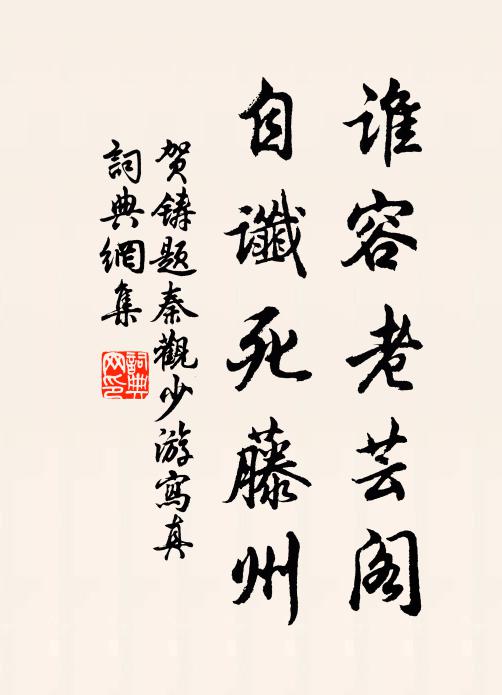 谁容老芸阁
自谶死藤州
贺铸题秦觀少游寫真
詞典網集
詞典网印